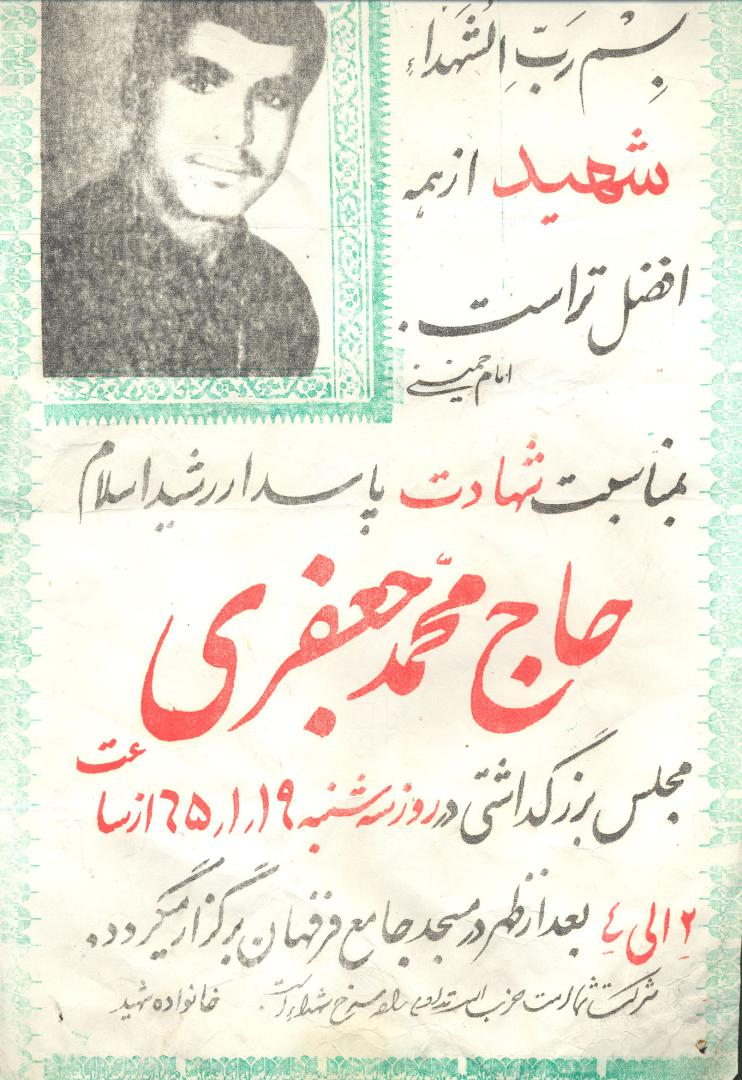 بسم ربّ الشهداء
شهید از همه
افضل تر است .
امام خمینی
بمناسبت شهادت پاسدار رشید اسلام
حاج محمّد جعفری
مجلس بزرگداشتی در روز سه شنبه ۶۵٫۱٫۱۹ از ساعت
۲ الی ٤ بعد از ظهر در مسجد جامع فرقهان برگزار میگردد.
شرکت شما امت حزب الله تداوم راه سرخ شهداء است. خانواده شهید